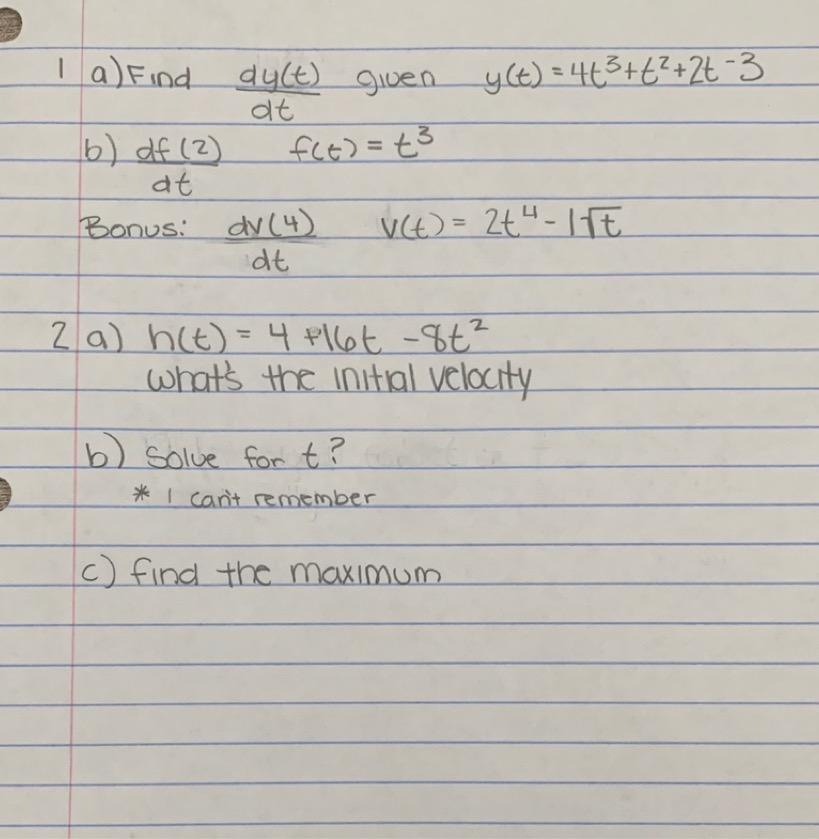 1 a) Find dy(t)/dt given y(t) = 4t³+t²+2t-3
b) df(2)/dt f(t) = t³
Bonus: dv(4)/dt v(t) = 2t⁴-1√t
2 a) h(t) = 4+16t-8t²
what's the initial velocity
b) Solve for t?
* I can't remember
c) find the maximum